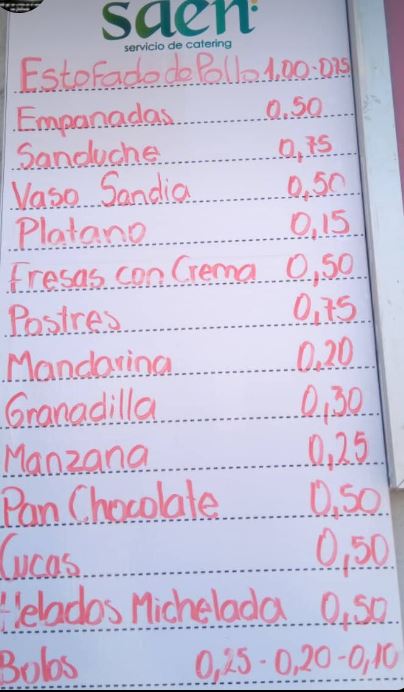 saen
servicio de catering
Estofado de Pollo 1,00-0,75
Empanadas 0,50
Sanduche 0,75
Vaso Sandia 0,50
Platano 0,15
Fresas con Crema 0,50
Postres 0,75
Mandarina 0,20
Granadilla 0,30
Manzana 0,25
Pan Chocolate 0,50
Cucas 0,50
Helados Michelada 0,50
Bolos 0,25-0,20-0,10